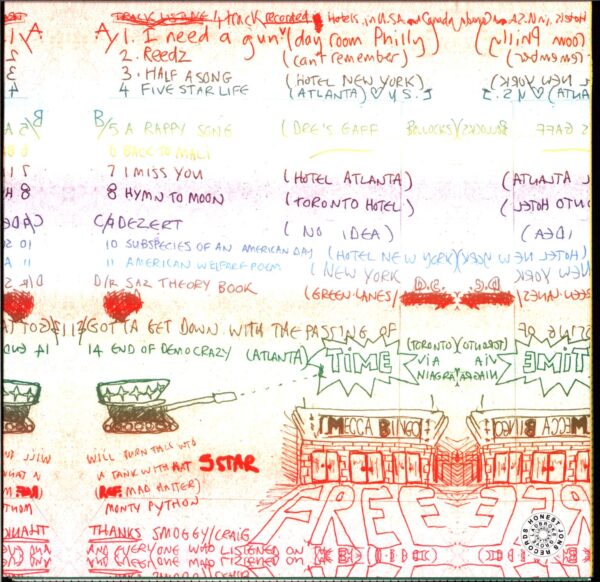 TRACK LISTING 4 track recorded Hotels in U.S.A and Canada
A/ 1. I need a gun (day room Philly)
2. Reedz (can't remember)
3. HALF A SONG (HOTEL NEW YORK)
4 FIVE STAR LIFE (ATLANTA) U.S.
B/ 5 A RAPPY SONE (DRE'S GAFF BOLLOCKS)
6 BACK TO MALI
7 I MISS YOU (HOTEL ATLANTA)
8 HYMN TO MOON (TORONTO HOTEL)
C/ 9 DEZERT (NO IDEA)
10 SUBSPECIES OF AN AMERICAN DAY (HOTEL NEW YORK)
11 AMERICAN WELFARE POEM (NEW YORK
D/12 SAZ THEORY BOOK (GREEN LANES)
GOTTA GET DOWN WITH THE PASSING OF TIME (TORONTO VIA NIAGRA)
14 END OF DEMOCRAZY (ATLANTA)
MECCA BINGO
WILL TURN THIS INTO
A TANK WITH HAT 5 STAR
MAD HATTER)
MONTY PYTHON
FREE
THANKS SMOGGY/CRAIG
AND EVERYONE WHO LISTENED ON
HONEST JONS RECORDS